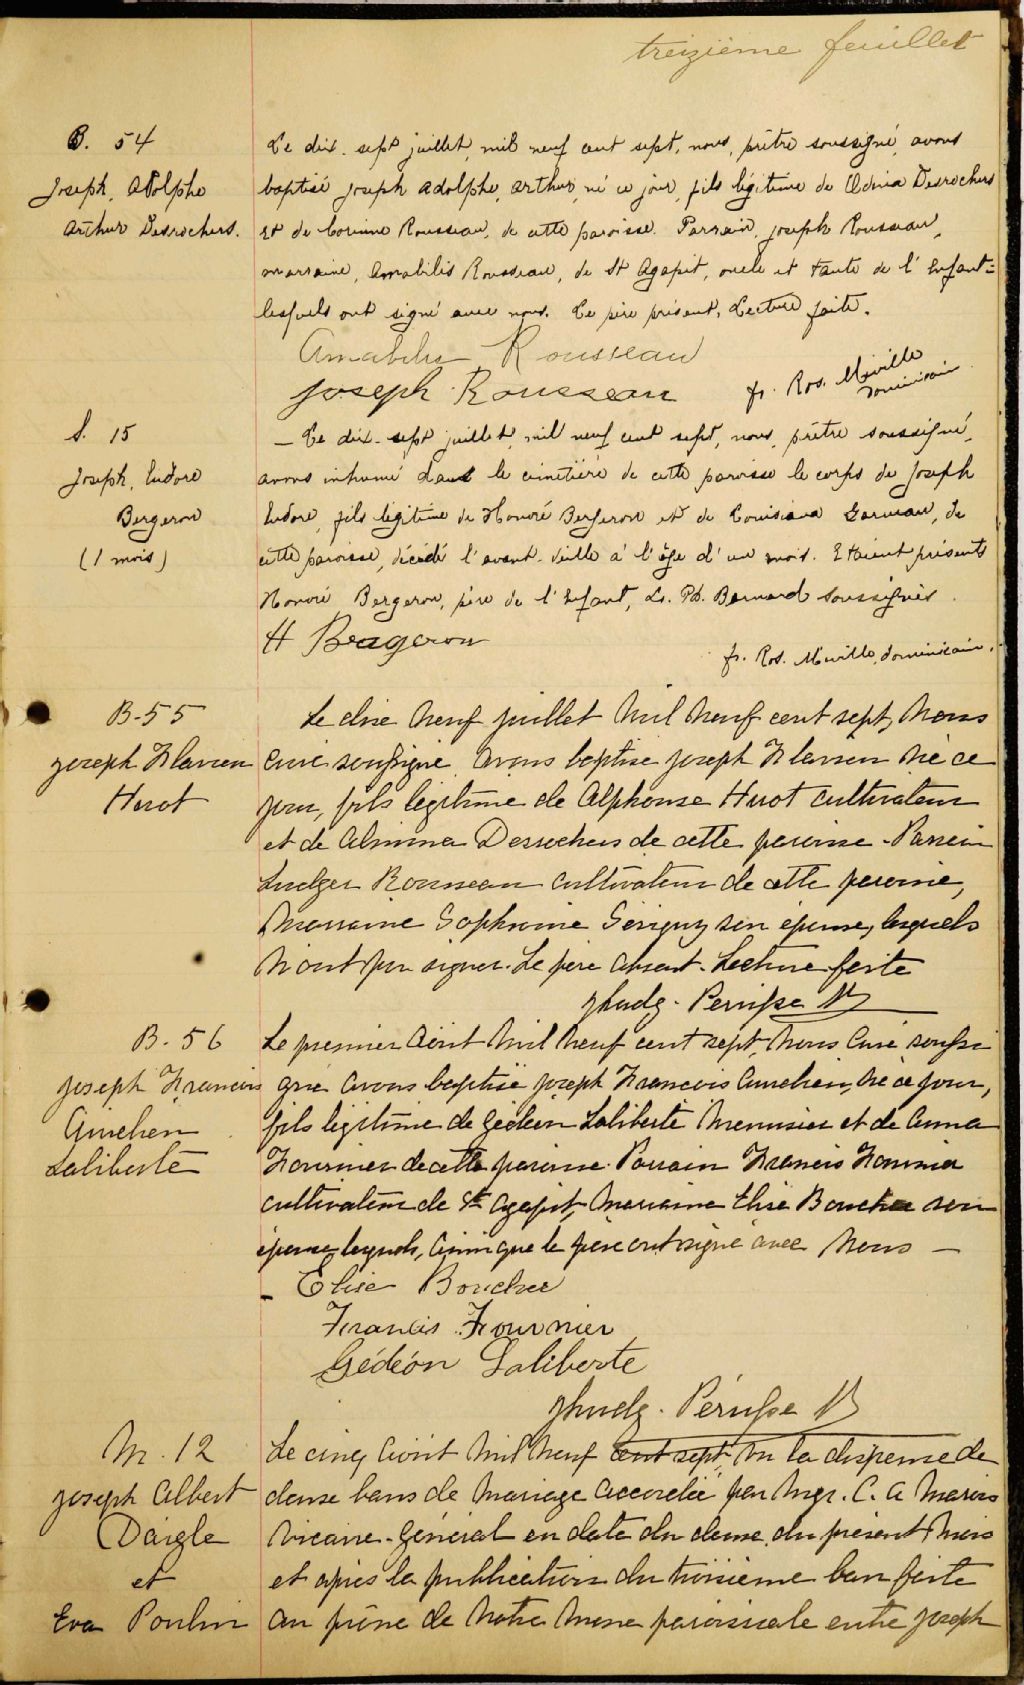 treizième feuillet
B. 54
Joseph, Adolphe
Arthur Desrochers.
Le dix-sept juillet, mil neuf cent sept, nous, prêtre soussigné, avons
baptisé Joseph Adolphe, Arthur, né ce jour, fils légitime de Desrochers
et de Corinne Rousseau, de cette paroisse. Parrain, Joseph Rousseau,
marraine, Amabilis Rousseau, de St Agapit, oncle et tante de l'Enfant-
lesquels ont signé avec nous. Le père présent. Lecture faite.
Amabilis Rousseau
Joseph Rousseau
fr. Ros. Miville
Dominicain
S. 15
Joseph, Ludore
Bergeron
(1 mois)
— Le dix-sept juillet, mil neuf cent sept, nous, prêtre soussigné,
avons inhumé dans le cimetière de cette paroisse le corps de Joseph
Ludore, fils légitime de Honoré Bergeron et de Louisiana Garneau, de
cette paroisse, décédé l'avant-veille à l'âge d'un mois. Etaient présents
Honoré Bergeron, père de l'Enfant, Ls. Ph. Bernard soussignés.
H Bergeron
fr. Ros. Miville, dominicain.
B-55
Joseph
Huot
Le dix neuf juillet mil neuf cent sept, Nous
Curé soussigné avons baptisé Joseph né ce
jour, fils légitime de Alphonse Huot cultivateur
et de Desrochers de cette paroisse - Parrain
Ludger Rousseau cultivateur de cette paroisse,
Marraine Sophronie Sévigny son épouse, lesquels
n'ont pu signer. Le père absent. Lecture faite
Pérusse
B. 56
Joseph Francois
Aurelien
Laliberté
Le premier Août mil neuf cent sept, Nous Curé soussi
gné avons baptisé Joseph Francois Aurelien, né ce jour,
fils légitime de Gédéon Laliberté Menuisier et de Anna
Fournier de cette paroisse. Parrain Francis Fournier
cultivateur de St Agapit, Marraine Elise Boucher son
épouse lesquels, ainsi que le père ont signé avec Nous —
Elise Boucher
Francis Fournier
Gédéon Laliberte
Pérusse
M. 12
Joseph Albert
Daigle
et
Eva Poulin
Le cinq Août mil neuf cent sept, Vu la dispense de
deux bans de Mariage accordée par Mgr. C. A Marois
Vicaire-Général en date du deux du présent Mois
et après la publication du troisième ban faite
au prône de Notre Messe paroissiale entre Joseph